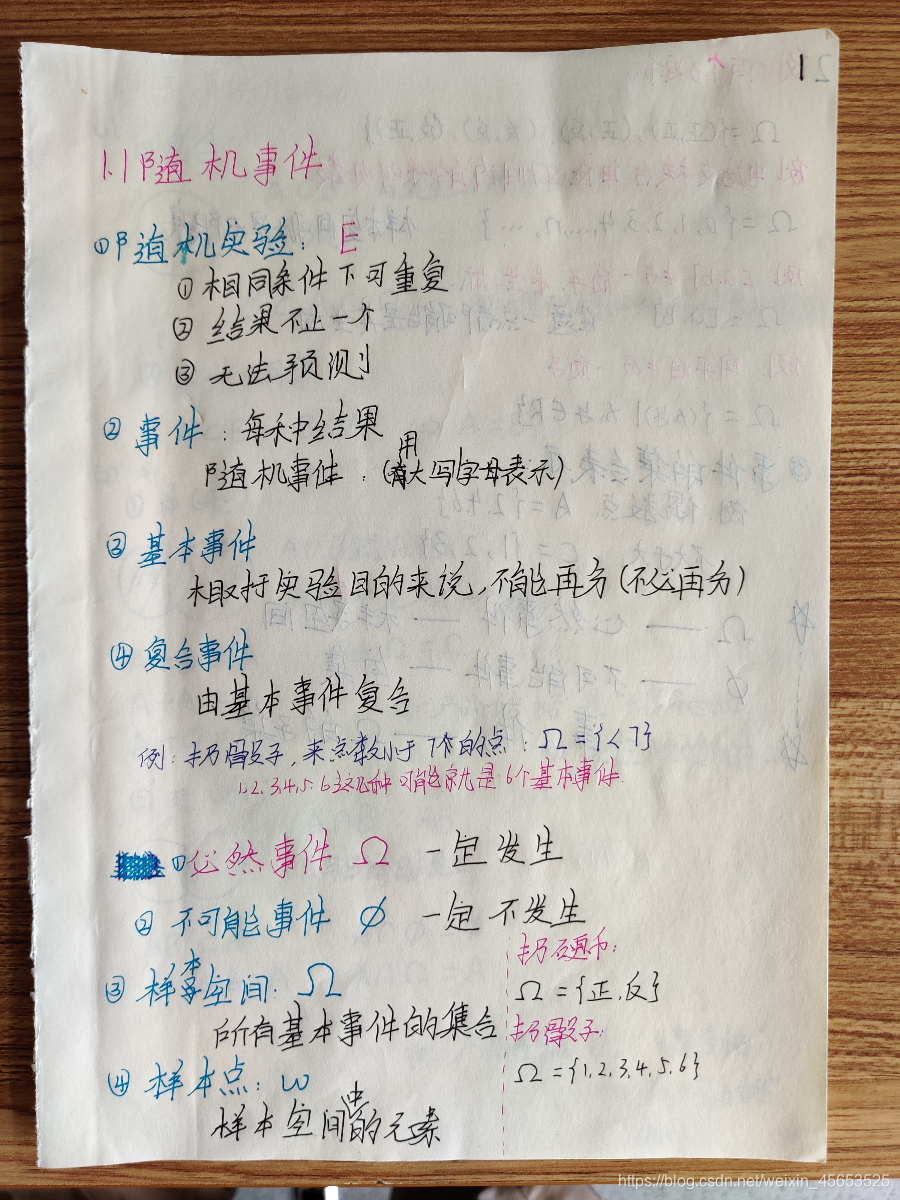 1
1.1 随机事件
① 随机实验： E
① 相同条件下可重复
② 结果不止一个
③ 无法预测
② 事件：每种结果
随机事件：（用大写字母表示）
③ 基本事件
相对于实验目的来说，不能再分（不必再分）
④ 复合事件
由基本事件复合
例：扔骰子，来点数小于7个的点：Ω={<7}
1.2.3.4.5.6 这几种可能就是6个基本事件.
① 必然事件 Ω 一定发生
② 不可能事件 ∅ 一定不发生
③ 样本空间：Ω
所有基本事件的集合
④ 样本点：ω
样本空间中的元素
扔硬币：
Ω={正.反}
扔骰子：
Ω={1.2.3.4.5.6}
https://blog.csdn.net/weixin_45653525